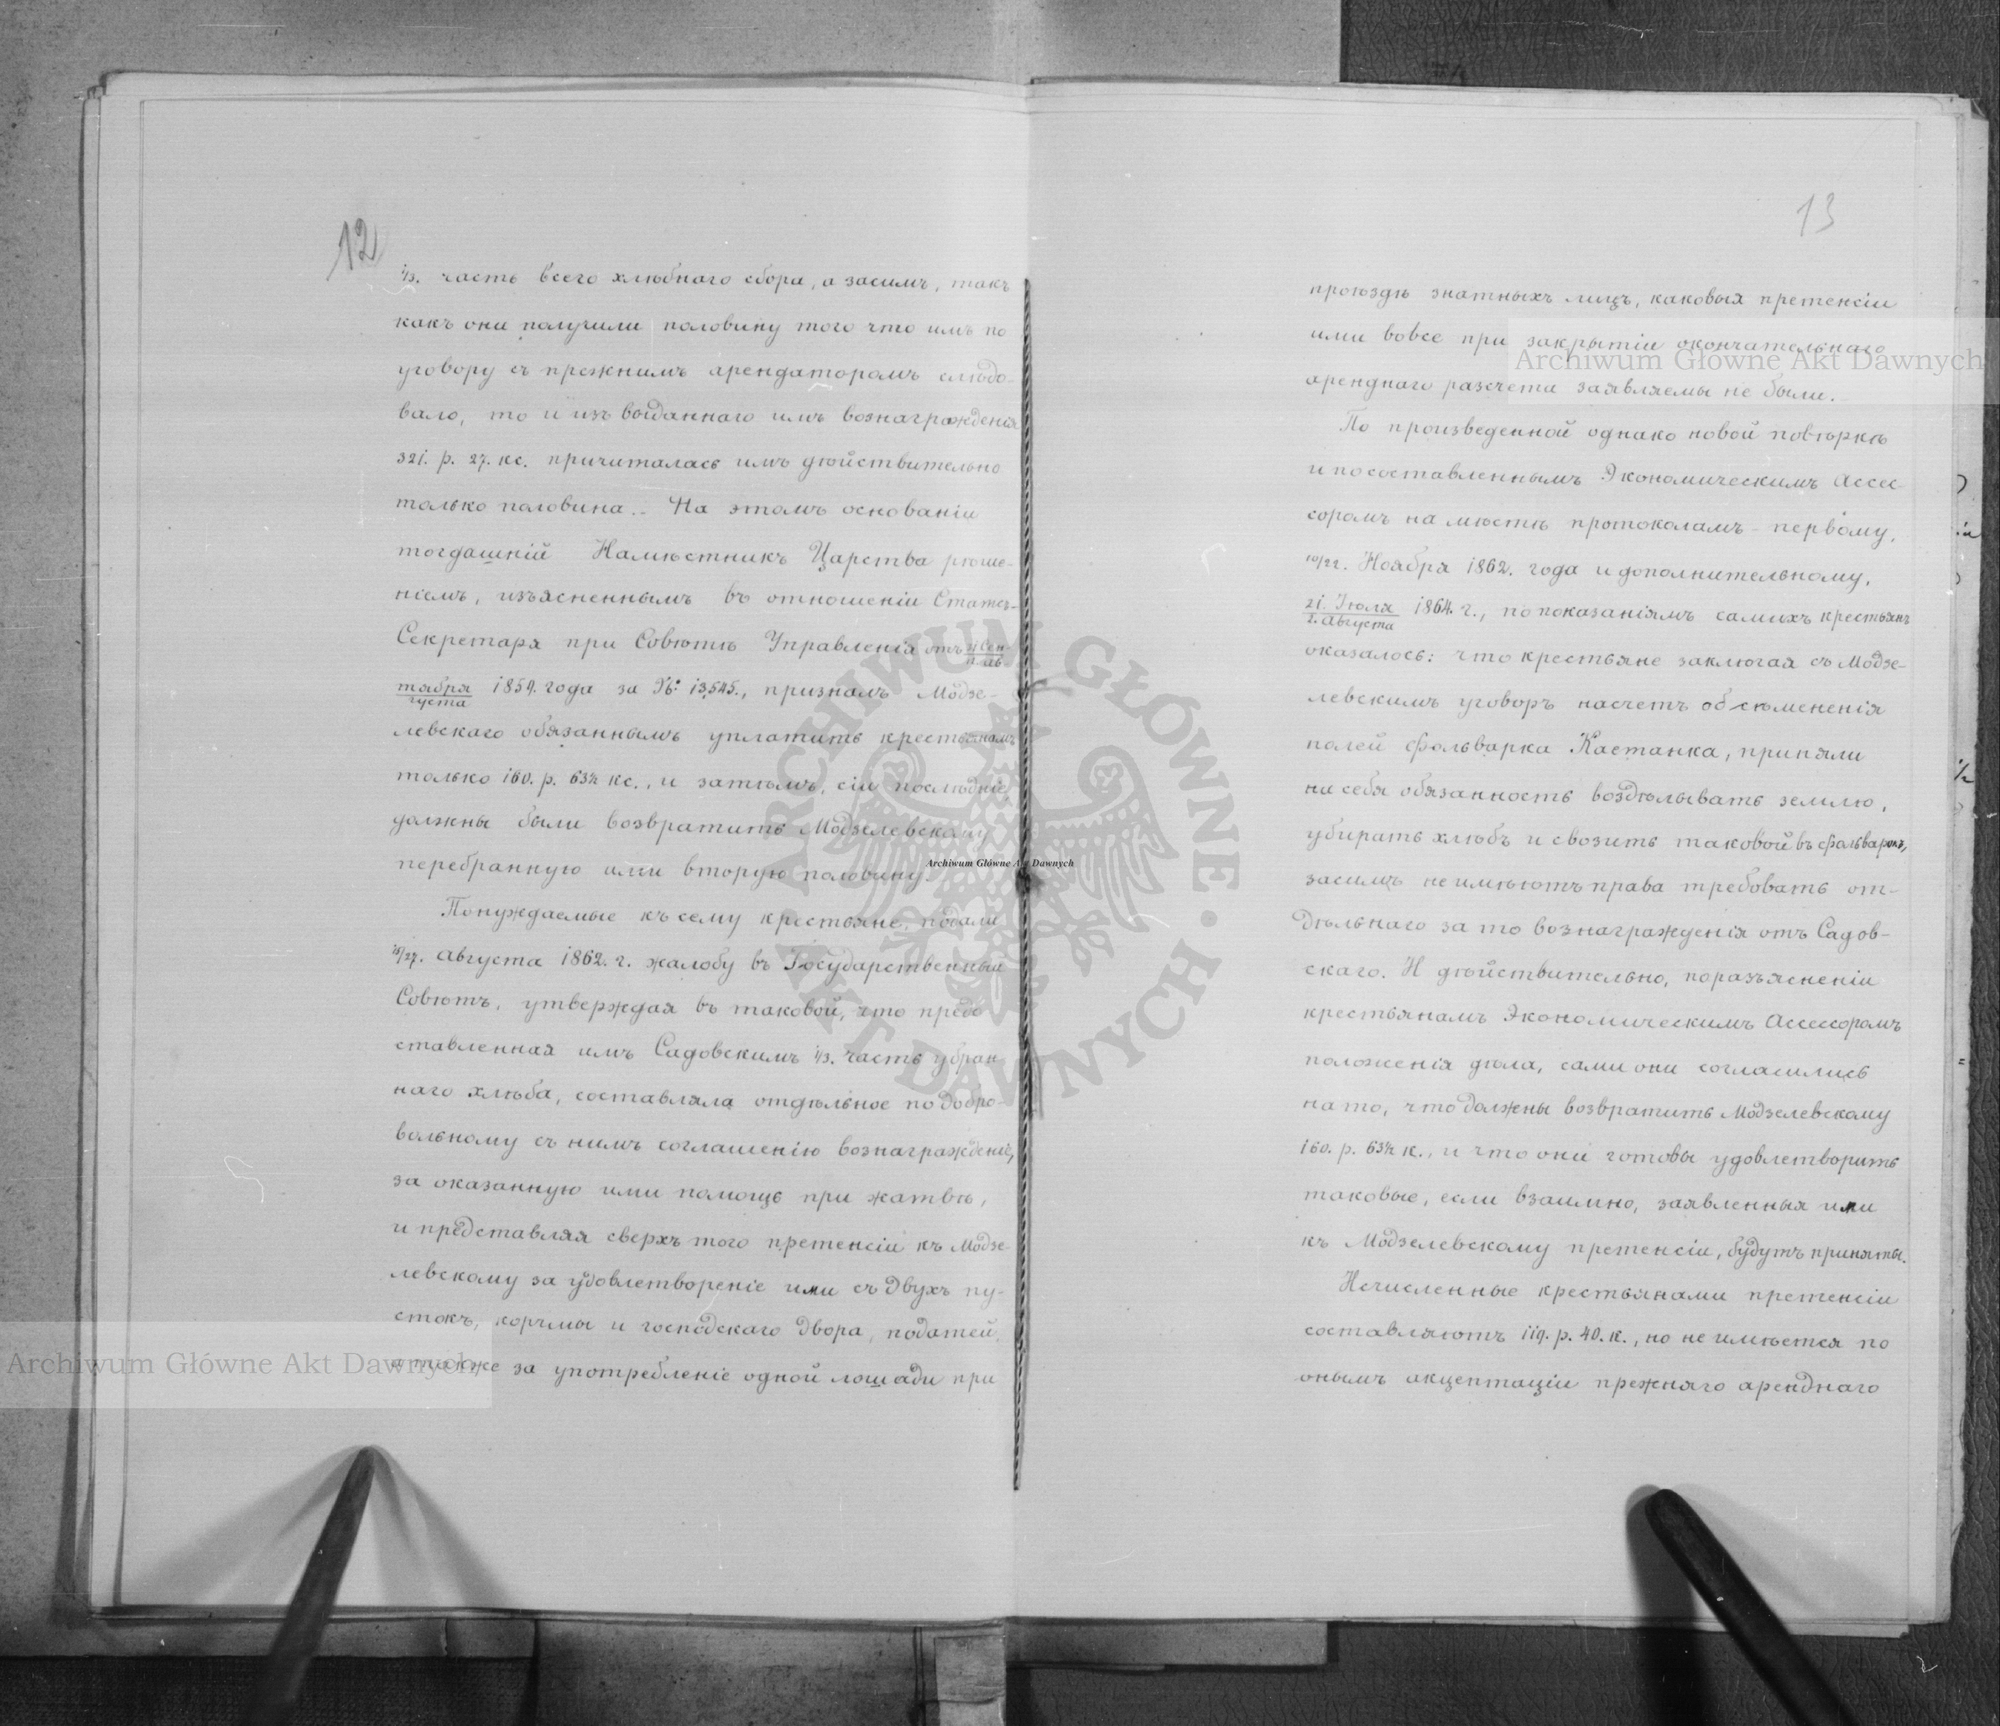 12
1/3. часть всего хлѣбнаго сбора, а засимъ, такъ
какъ они получили половину того что имъ по
уговору съ прежнимъ арендаторомъ слѣдо-
вало, то и изъ выданнаго имъ вознагражденія
321. р. 27. кс. причиталась имъ дѣйствительно
только половина.. На этомъ основаніи
тогдашній Намѣстникъ Царства рѣше-
ніемъ, изъясненнымъ въ отношеніи Статсъ-
Секретаря при Совѣтѣ Управленія отъ
1859. года за №: 13,545., призналъ Модзе-
левскаго обязаннымъ уплатить крестьянамъ
только 160. р. 63½ кс., и затѣмъ, сіи послѣдніе,
должны были возвратить Модзелевскому
перебранную ими вторую половину.
Понуждаемые къ сему крестьяне, подали
15/27. Августа 1862. г. жалобу въ Государственный
Совѣтъ, утверждая въ таковой, что предо
ставленная имъ Садовскимъ 1/3. часть убран
наго хлѣба, составляла отдѣльное по добро-
вольному съ нимъ соглашенію вознагражденіе,
за оказанную ими помощь при жатвѣ,
и представляя сверхъ того претенсіи къ Модзе
левскому за удовлетвореніе ими съ двухъ пу-
стокъ, корчмы и господскаго двора, податей,
а также за употребленіе одной лошади при
13
проѣздѣ знатныхъ лицъ, каковыя претенсіи
ими вовсе при закрытіи окончательнаго
аренднаго разсчета заявляемы не были.
По произведенной однако новой повѣркѣ
и по составленнымъ Экономическимъ Ассес-
соромъ на мѣстѣ протоколамъ - первому,
10/22. Ноября 1862. года и дополнительному,
21. Іюля / 2. Августа 1864. г., по показаніямъ самихъ крестьянъ
оказалось: что крестьяне заключая съ Модзе-
левскимъ уговоръ насчетъ обсѣмененія
полей фольварка Кастанка, приняли
на себя обязанность воздѣлывать землю,
убирать хлѣбъ и свозить таковой въ фольварокъ,
засимъ не имѣютъ права требовать от-
дѣльнаго за то вознагражденія отъ Садов-
скаго. И дѣйствительно, по разъясненіи
крестьянамъ Экономическимъ Ассессоромъ
положенія дѣла, сами они согласились
на то, что должны возвратить Модзелевскому
160. р. 63½ к., и что они готовы удовлетворить
таковые, если взаимно, заявленныя ими
къ Модзелевскому претенсіи, будутъ приняты.
Исчисленные крестьянами претенсіи
составляютъ 119. р. 40. к., но не имѣется по
онымъ акцептаціи прежняго аренднаго
Archiwum Główne Akt Dawnych
Archiwum Główne Akt Dawnych
Archiwum Główne Akt Dawnych
ARCHIWUM GŁÓWNE AKT DAWNYCH